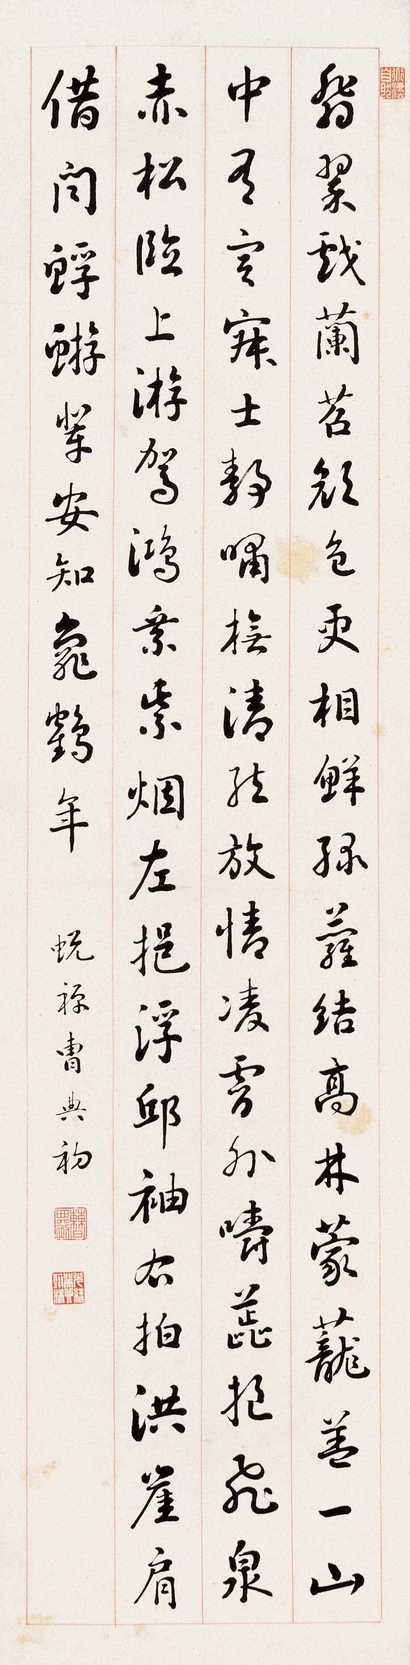 翡翠戲蘭苕顏色更相鮮綠蘿結高林蒙蘢蓋一山
中有冥寂士靜嘯撫清弦放情凌霄外嚼蕊挹飛泉
赤松臨上游駕鴻乘紫烟左挹浮邱袖右拍洪崖肩
借問蜉蝣輩安知龜鶴年
蛻禪曹典初